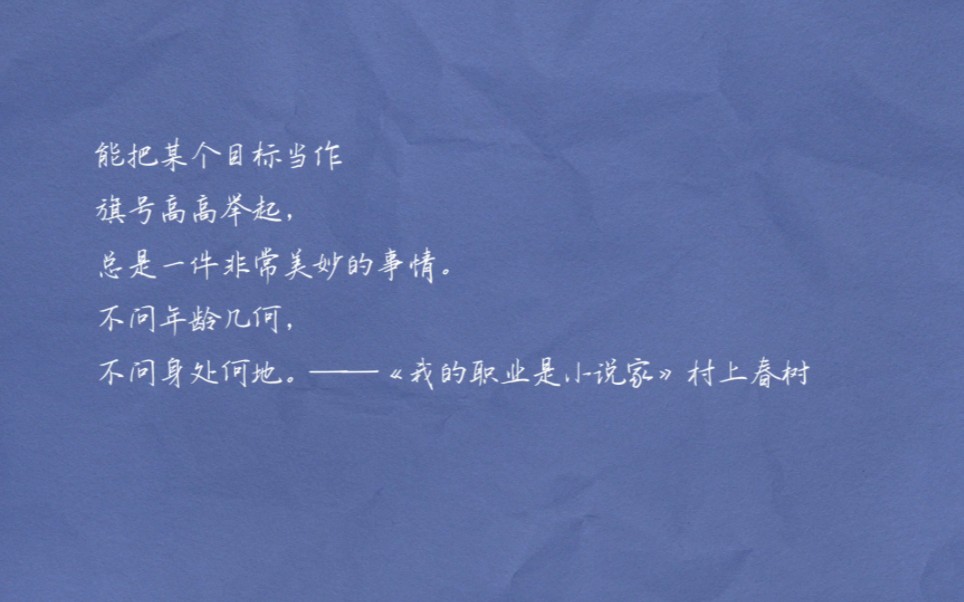 能把某个目标当作
旗号高高举起，
总是一件非常美妙的事情。
不问年龄几何，
不问身处何地。——《我的职业是小说家》村上春树